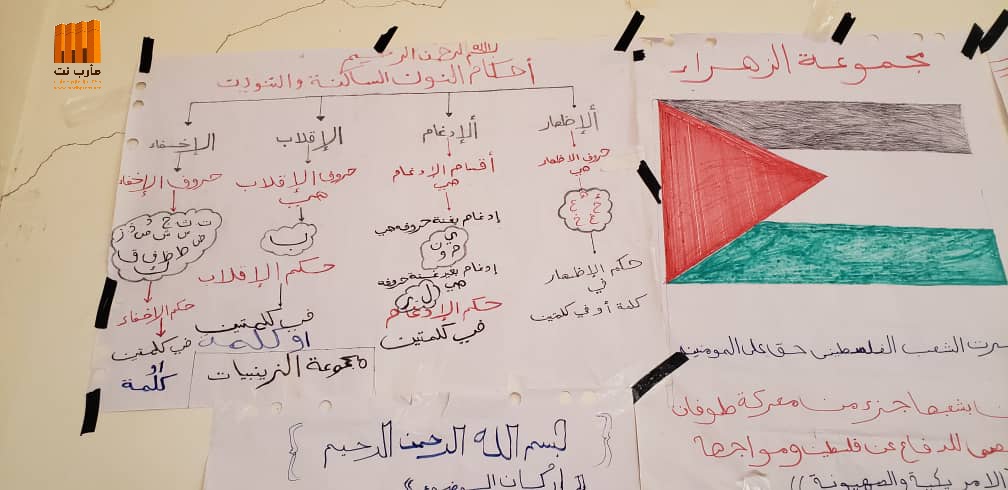 مأرب نت
بسم الله الرحمن الرحيم
أحكام النون الساكنة والتنوين
الإظهار
حروف الاظهار
هي
حكم الإظهار
في
كلمة أو في كلمتين
الإدغام
أقسام الإدغام
هي
إدغام بغنة حروفه هي
ي ن م و
إدغام بغير غنة حروفه
هي
ل ر
حكم الإدغام
في كلمتين
الإقلاب
حروف الإقلاب
هي
ب
حكم الإقلاب
في كلمتين
او كلمة
الإخفاء
حروف الإخفاء
حكم الاخفاء
في كلمتين
او
كلمة
مجموعة الزينبيات
مجموعة الزهراء
الشعب الفلسطيني حق على المومنين
جزء من معركة طوفان
للدفاع عن فلسطين ومواجهة
الامريكية والصهيونة ))
بسم الله الرحمن الرحيم
(( أركان الوضوء ))